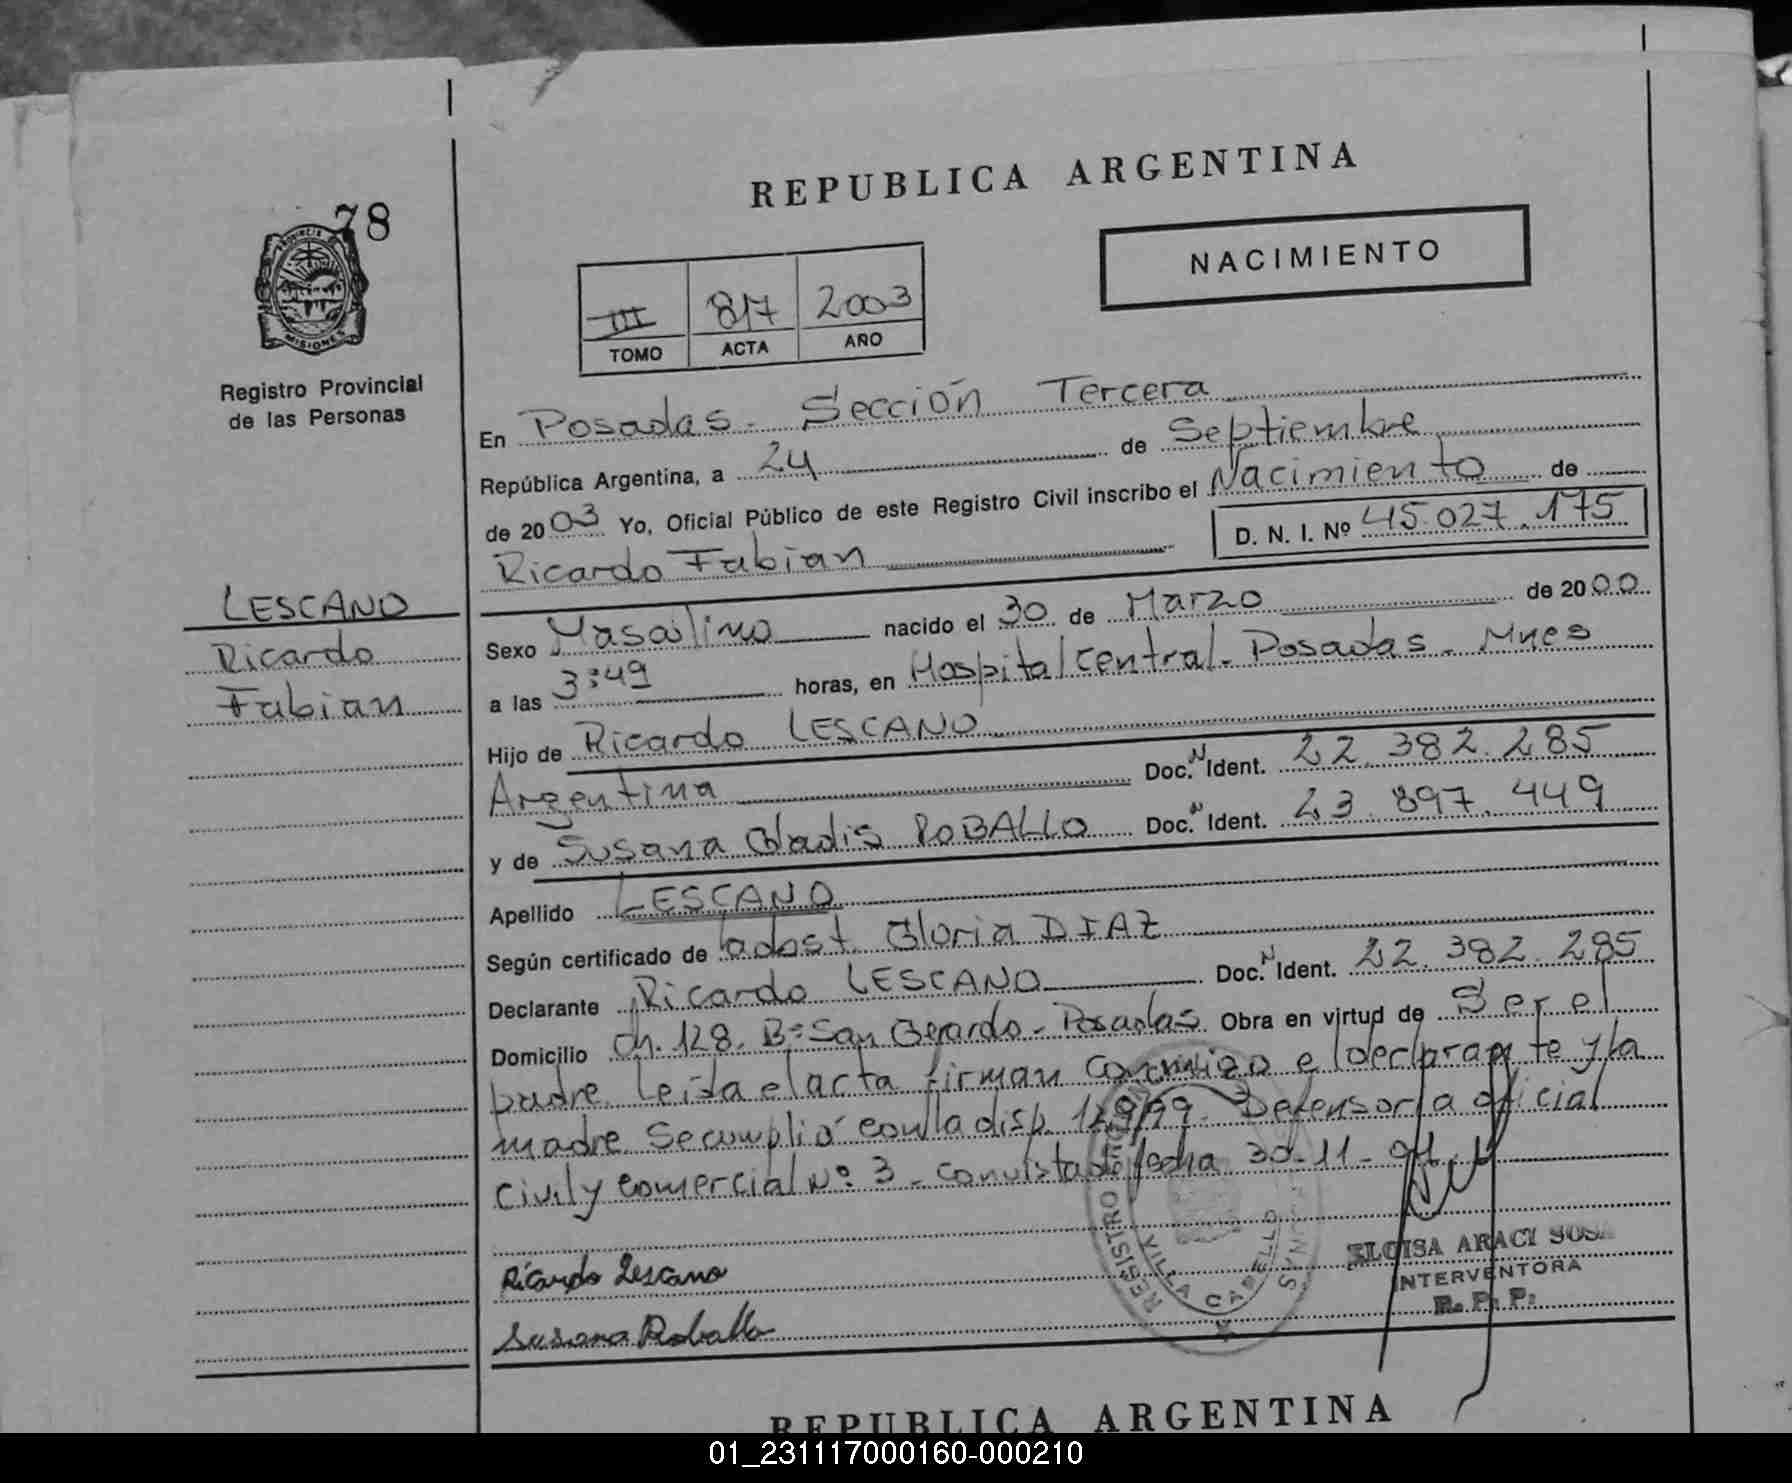 REPUBLICA ARGENTINA
78
NACIMIENTO
III 817 2003
TOMO ACTA AÑO
PROVINCIA DE
MISIONES
Registro Provincial
de las Personas
LESCANO
Ricardo
Fabian
En Posadas. Sección Tercera
República Argentina, a 24 de Septiembre
de 2003 Yo, Oficial Público de este Registro Civil inscribo el Nacimiento de
Ricardo Fabian D. N. I. Nº 45.027.175
Sexo Masculino nacido el 30 de Marzo de 2000
a las 3:49 horas, en Hospital Central. Posadas. Mnes
Hijo de Ricardo LESCANO
Argentina Doc. N Ident. 22.382.285
y de Susana Gladis ROBALLO Doc. N Ident. 23.897.449
Apellido LESCANO
Según certificado de obst. Gloria DIAZ
Declarante Ricardo LESCANO Doc. N Ident. 22.382.285
Domicilio Ch. 128. Bº San Gerardo - Posadas Obra en virtud de Ser el
padre. Leída el acta firman conmigo el declarante y la
madre. Se cumplió con la disp. 129/99. Defensoría oficial
Civil y comercial Nº 3 - con vista de fecha 30-11-
Ricardo Lescano
Susana Roballo
REGISTRO
VILLA CABELLO
ELOISA ARACI SOSA
INTERVENTORA
R. P. P.
REPUBLICA ARGENTINA
01_231117000160-000210